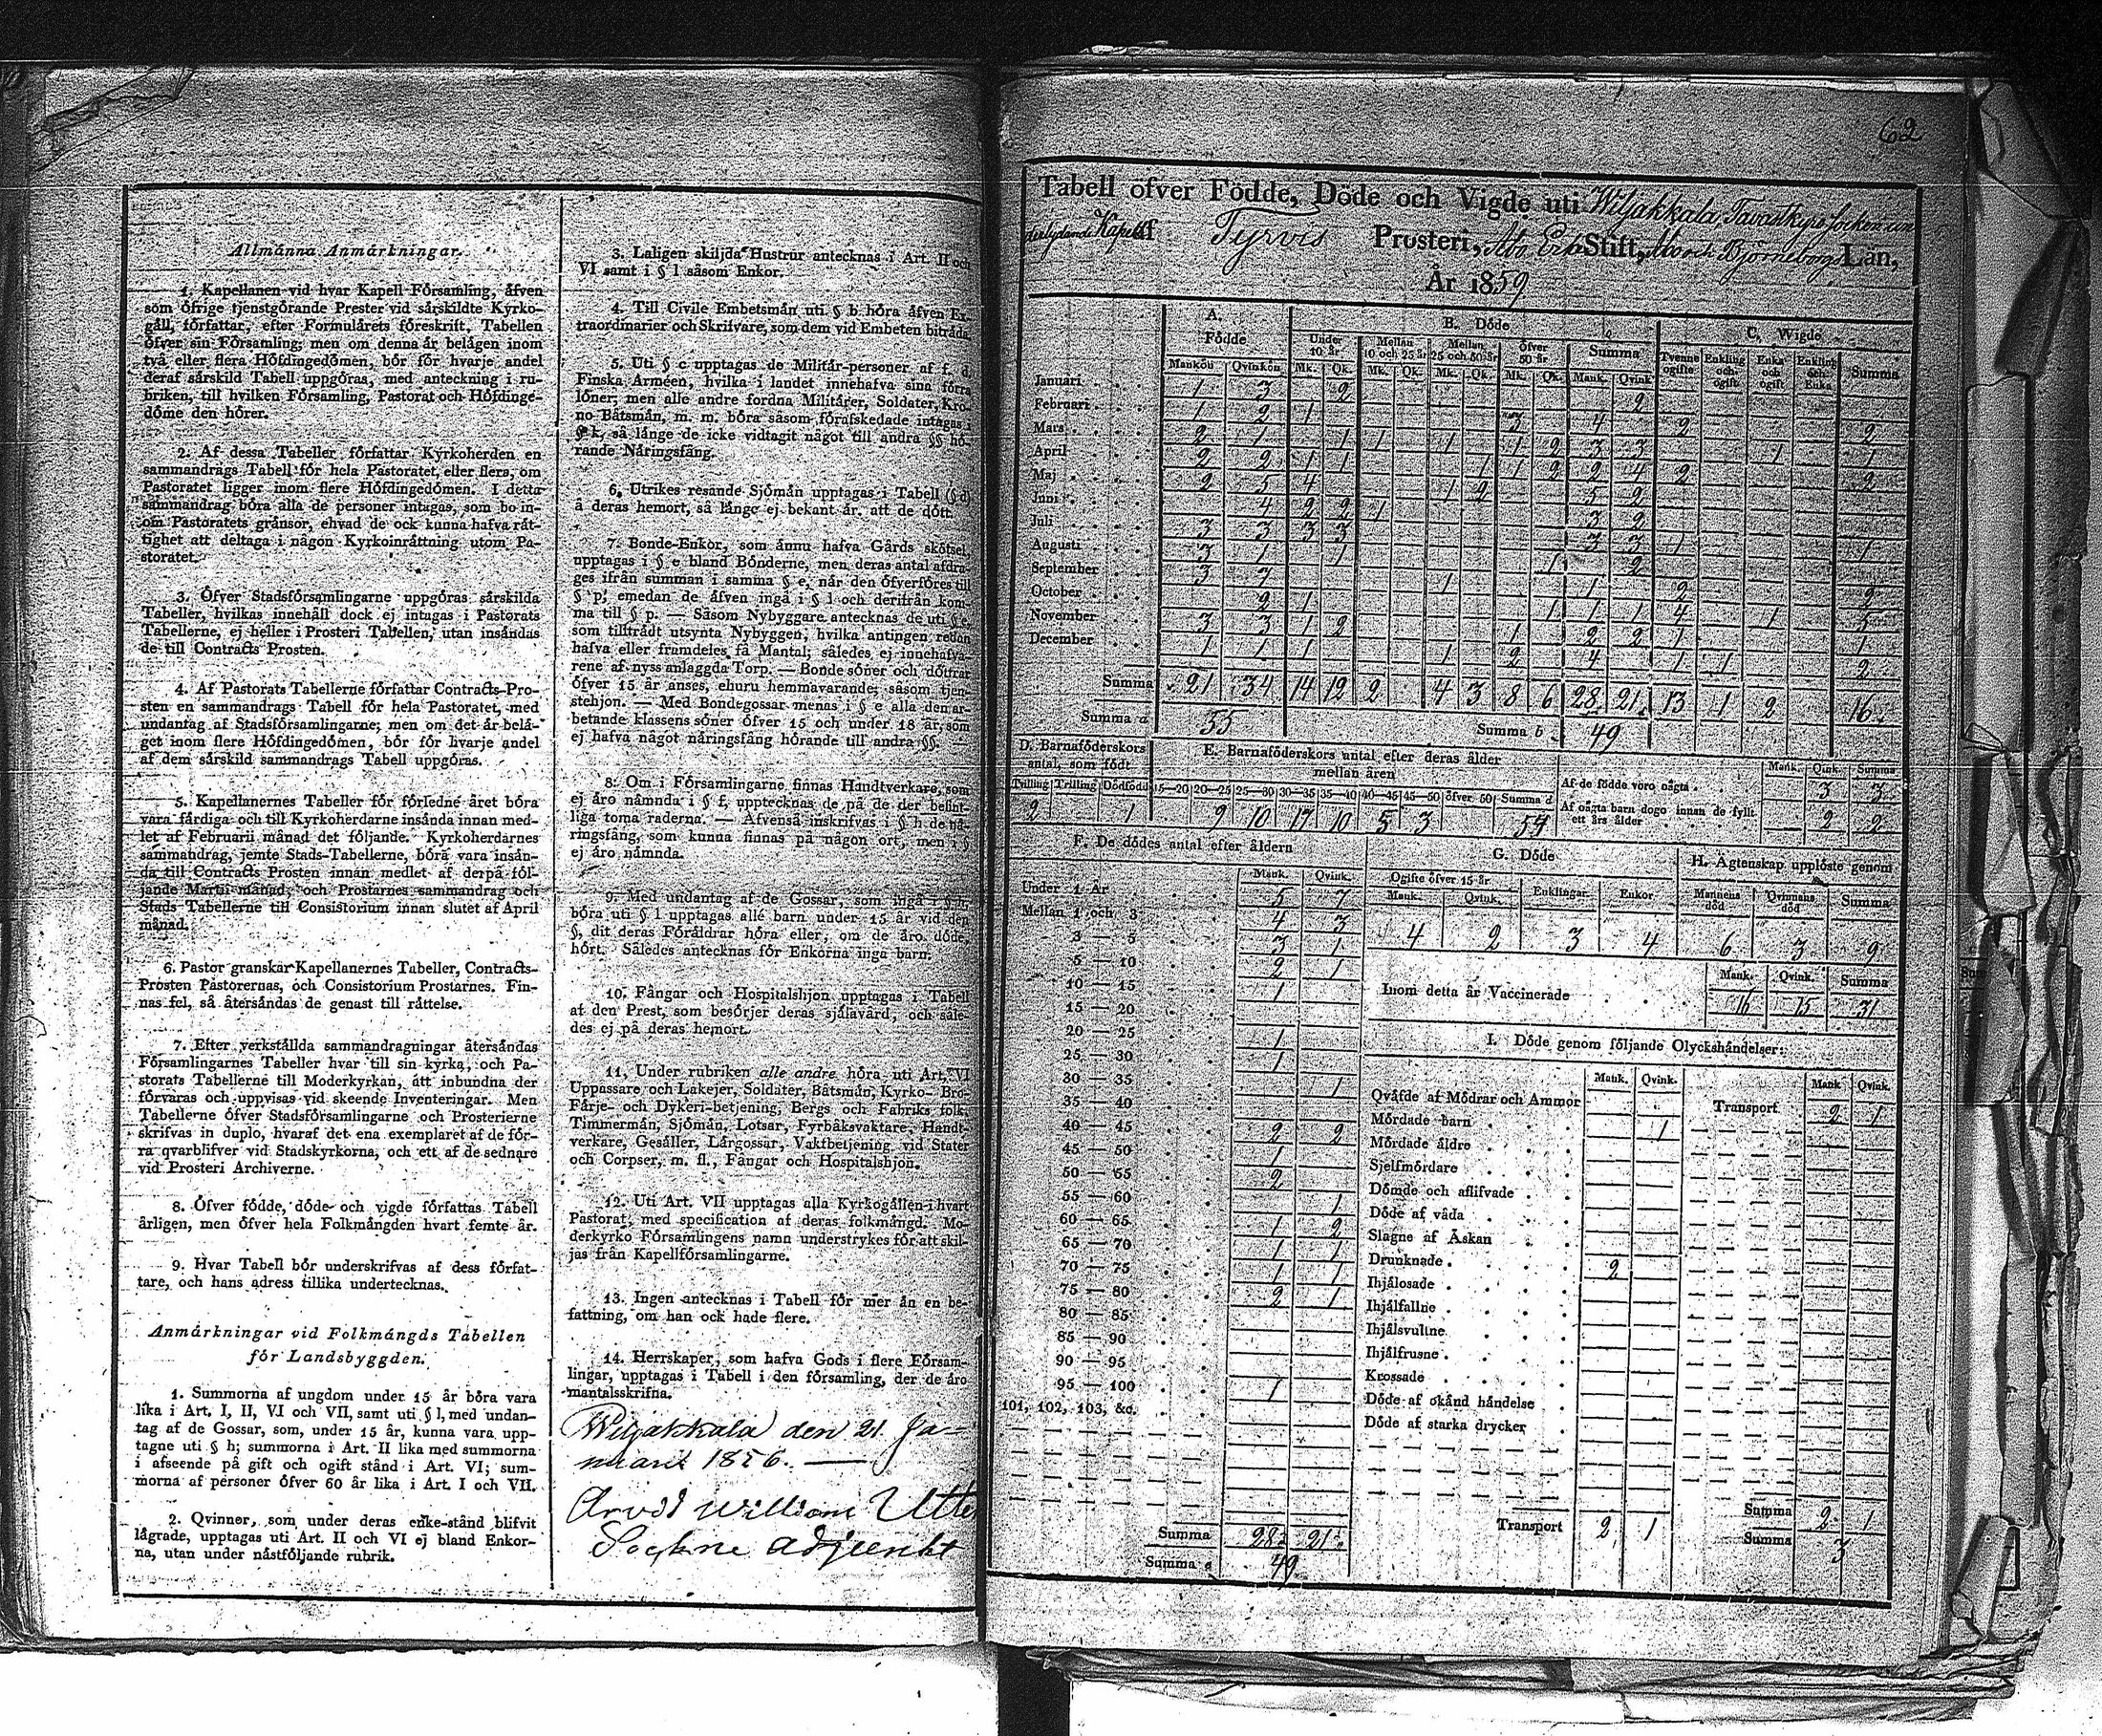 Allmänna Anmärkningar.
1. Kapellanen vid hvar Kapell Församling, äfven
som öfrige tjenstgörande Prester vid särskildte Kyrko-
gäll, författar, efter Formulärets föreskrift, Tabellen
öfver sin Församling; men om denna är belägen inom
två eller flera Höfdingedömen, bör för hvarje andel
deraf särskild Tabell uppgöras, med anteckning i ru-
briken, till hvilken Församling, Pastorat och Höfdinge-
döme den hörer.
2. Af dessa Tabeller författar Kyrkoherden en
sammandrags Tabell för hela Pastoratet, eller flera, om
Pastoratet ligger inom flere Höfdingedömen. I detta
sammandrag böra alla de personer intagas, som bo in-
om Pastoratets gränsor, ehvad de ock kunna hafva rät-
tighet att deltaga i någon Kyrkoinrättning utom Pa-
storatet.
3. Öfver Stadsförsamlingarne uppgöras särskilda
Tabeller, hvilkas innehåll dock ej intagas i Pastorats
Tabellerne, ej heller i Prosteri Tabellen, utan insändas
de till Contracts Prosten.
4. Af Pastorats Tabellerne författar Contracts-Pro-
sten en sammandrags Tabell för hela Pastoratet, med
undantag af Stadsförsamlingarne; men om det är belä-
get inom flere Höfdingedömen, bör för hvarje andel
af dem särskild sammandrags Tabell uppgöras.
5. Kapellanernes Tabeller för förledne året böra
vara färdiga och till Kyrkoherdarne insända innan med-
let af Februarii månad det följande. Kyrkoherdarnes
sammandrag, jemte Stads-Tabellerne, böra vara insän-
da till Contracts Prosten innan medlet af derpå föl-
jande Martii månad; och Prostarnes sammandrag och
Stads Tabellerne till Consistorium innan slutet af April
månad.
6. Pastor granskar Kapellanernes Tabeller, Contracts-
Prosten Pastorernas, och Consistorium Prostarnes. Fin-
nas fel, så återsändas de genast till rättelse.
7. Efter verkställda sammandragningar återsändas
Församlingarnes Tabeller hvar till sin kyrka, och Pa-
storats Tabellerne till Moderkyrkan, att inbundna der
förvaras och uppvisas vid skeende Inventeringar. Men
Tabellerne öfver Stadsförsamlingarne och Prosterierne
skrifvas in duplo, hvaraf det ena exemplaret af de för-
ra qvarblifver vid Stadskyrkorna, och ett af de sednare
vid Prosteri Archiverne.
8. Öfver födde, döde och vigde författas Tabell
årligen, men öfver hela Folkmängden hvart femte år.
9. Hvar Tabell bör underskrifvas af dess förfat-
tare, och hans adress tillika undertecknas.
Anmärkningar vid Folkmängds Tabellen
för Landsbyggden.
1. Summorna af ungdom under 15 år böra vara
lika i Art. I, II, VI och VII, samt uti § l, med undan-
tag af de Gossar, som, under 15 år, kunna vara upp-
tagne uti § h; summorna i Art. II lika med summorna
i afseende på gift och ogift stånd i Art. VI; sum-
morna af personer öfver 60 år lika i Art. I och VII.
2. Qvinnor, som under deras enke-stånd blifvit
lägrade, upptagas uti Art. II och VI ej bland Enkor-
na, utan under nästföljande rubrik.
3. Laligen skiljda Hustrur antecknas i Art. II och
VI samt i § l såsom Enkor.
4. Till Civile Embetsmän uti § b höra äfven Ex-
traordinarier och Skrifvare, som dem vid Embeten biträda.
5. Uti § c upptagas de Militär-personer af f. d.
Finska Arméen, hvilka i landet innehafva sina förra
löner; men alle andre fordna Militärer, Soldater, Kro-
no Båtsmän, m. m. böra såsom förafskedade intagas i
§ k, så länge de icke vidtagit något till andra §§ hö-
rande Näringsfång.
6. Utrikes resande Sjömän upptagas i Tabell (§ d)
å deras hemort, så länge ej bekant är, att de dött.
7. Bonde-Enkor, som ännu hafva Gårds skötsel,
upptagas i § e bland Bönderne, men deras antal afdra-
ges ifrån summan i samma § e, når den öfverföres till
§ p, emedan de äfven ingå i § l och derifrån kom-
ma till § p. — Såsom Nybyggare antecknas de uti § e,
som tillträdt utsynta Nybyggen, hvilka antingen redan
hafva eller framdeles få Mantal; således ej innehafva-
rene af nyss anlaggda Torp. — Bonde söner och döttrar
öfver 15 år anses, ehuru hemmavarande, såsom tjen-
stehjon. — Med Bondegossar menas i § e alla den ar-
betande klassens söner öfver 15 och under 18 år, som
ej hafva något näringsfång hörande till andra §§. —
8. Om i Församlingarne finnas Handtverkare, som
ej äro nämnda i § f, upptecknas de på de der befint-
liga toma raderna. — Äfvenså inskrifvas i § h de nä-
ringsfång, som kunna finnas på någon ort, men i §
ej äro nämnda.
9. Med undantag af de Gossar, som ingå i § h,
böra uti § l upptagas alle barn under 15 år vid den
§, dit deras Föräldrar höra eller, om de äro döde,
hört. Således antecknas för Enkorna inga barn.
10. Fångar och Hospitalshjon upptagas i Tabell
af den Prest, som besörjer deras själavård, och såle-
des ej på deras hemort.
11. Under rubriken alle andre höra uti Art. VI
Uppassare och Lakejer, Soldater, Båtsmän, Kyrko- Bro-
Färje- och Dykeri-betjening, Bergs och Fabriks folk,
Timmermän, Sjömän, Lotsar, Fyrbåksvaktare, Handt-
verkare, Gesäller, Lärgossar, Vaktbetjening vid Stater
och Corpser, m. fl., Fångar och Hospitalshjon.
12. Uti Art. VII upptagas alla Kyrkogällen i hvart
Pastorat, med specification af deras folkmängd. Mo-
derkyrko Församlingens namn understrykes för att skil-
jas från Kapellförsamlingarne.
13. Ingen antecknas i Tabell för mer än en be-
fattning, om han ock hade flere.
14. Herrskaper, som hafva Gods i flere Försam-
lingar, upptagas i Tabell i den församling, der de äro
mantalsskrifna.
Wiljakkala den 21 Ja-
nuarii 1856. —
Arvid William
Sockne adjunkt
62
Tabell öfver Födde, Döde och Vigde uti Wiljakkala, Tavastkyro Socken un
derlydande Kapell Tyrvis Prosteri, Åbo Erke Stift, Åbo och Björneborgs Län,
År 1859
A. Födde B. Döde C. Wigde
Under 10 år Mellan 10 och 25 år Mellan 25 och 50 år Öfver 50 år Summa Tvenne ogifte Enkling och ogift Enka och ogift Enkling och Enka Summa
Mankön Qvinkön Mk. Qk. Mk. Qk. Mk. Qk. Mk. Qk. Mank. Qvink.
Januari 1 3 2 2
Februari 1 2 1 3 4 2 2
Mars 2 1 1 1 1 1 2 3 3 1 1
April 2 2 1 1 1 1 2 2 4 2 2
Maj 2 5 4 1 2 5 2
Juni 4 2 2 1 3 2
Juli 3 3 3 3 3 3 1 1
Augusti 3 1 1 1 2
September 3 7 1 1 2 2
October 2 1 1 1 1 4 1 5
November 3 3 1 2 1 2 2 1 1
December 1 1 1 1 2 4 1 1 2
Summa 21 34 14 12 2 4 3 8 6 28 21 13 1 2 16
Summa a 55 Summa b 49
D. Barnaföderskors antal, som födt
Tvilling Trilling Dödfödd
2 1
E. Barnaföderskors antal efter deras ålder mellan åren
15—20 20—25 25—30 30—35 35—40 40—45 45—50 öfver 50 Summa d
9 10 17 10 5 3 54
Mank. Qvink. Summa
Af de födde voro oägta 3 3
Af oägta barn dogo innan de fyllt ett års ålder 2 2
F. De dödes antal efter åldern
Mank. Qvink.
Under 1 År 5 7
Mellan 1 och 3 4 3
3 — 5 3 1
5 — 10 2 1
10 — 15 1
15 — 20
20 — 25 1
25 — 30 1
30 — 35 1
35 — 40
40 — 45 2 2
45 — 50 1
50 — 55 2
55 — 60 1
60 — 65 1 2
65 — 70 1 1
70 — 75 1 1
75 — 80 2 1
80 — 85
85 — 90
90 — 95
95 — 100 1
101, 102, 103, &c.
Summa 28 21
Summa e 49
G. Döde
Ogifte öfver 15 år Enklingar Enkor
Mank. Qvink.
4 2 3 4
H. Ägtenskap upplöste genom
Mannens död Qvinnans död Summa
6 3 9
Mank. Qvink. Summa
Inom detta år Vaccinerade 16 15 31
I. Döde genom följande Olyckshändelser:
Mank. Qvink. Mank. Qvink.
Qväfde af Mödrar och Ammor Transport 2 1
Mördade barn 1
Mördade äldre
Sjelfmördare
Dömde och aflifvade
Döde af våda
Slagne af Åskan
Drunknade 2
Ihjälosade
Ihjälfallne
Ihjälsvultne
Ihjälfrusne
Krossade
Döde af okänd händelse
Döde af starka drycker
Transport 2 1 Summa 2 1
Summa 3